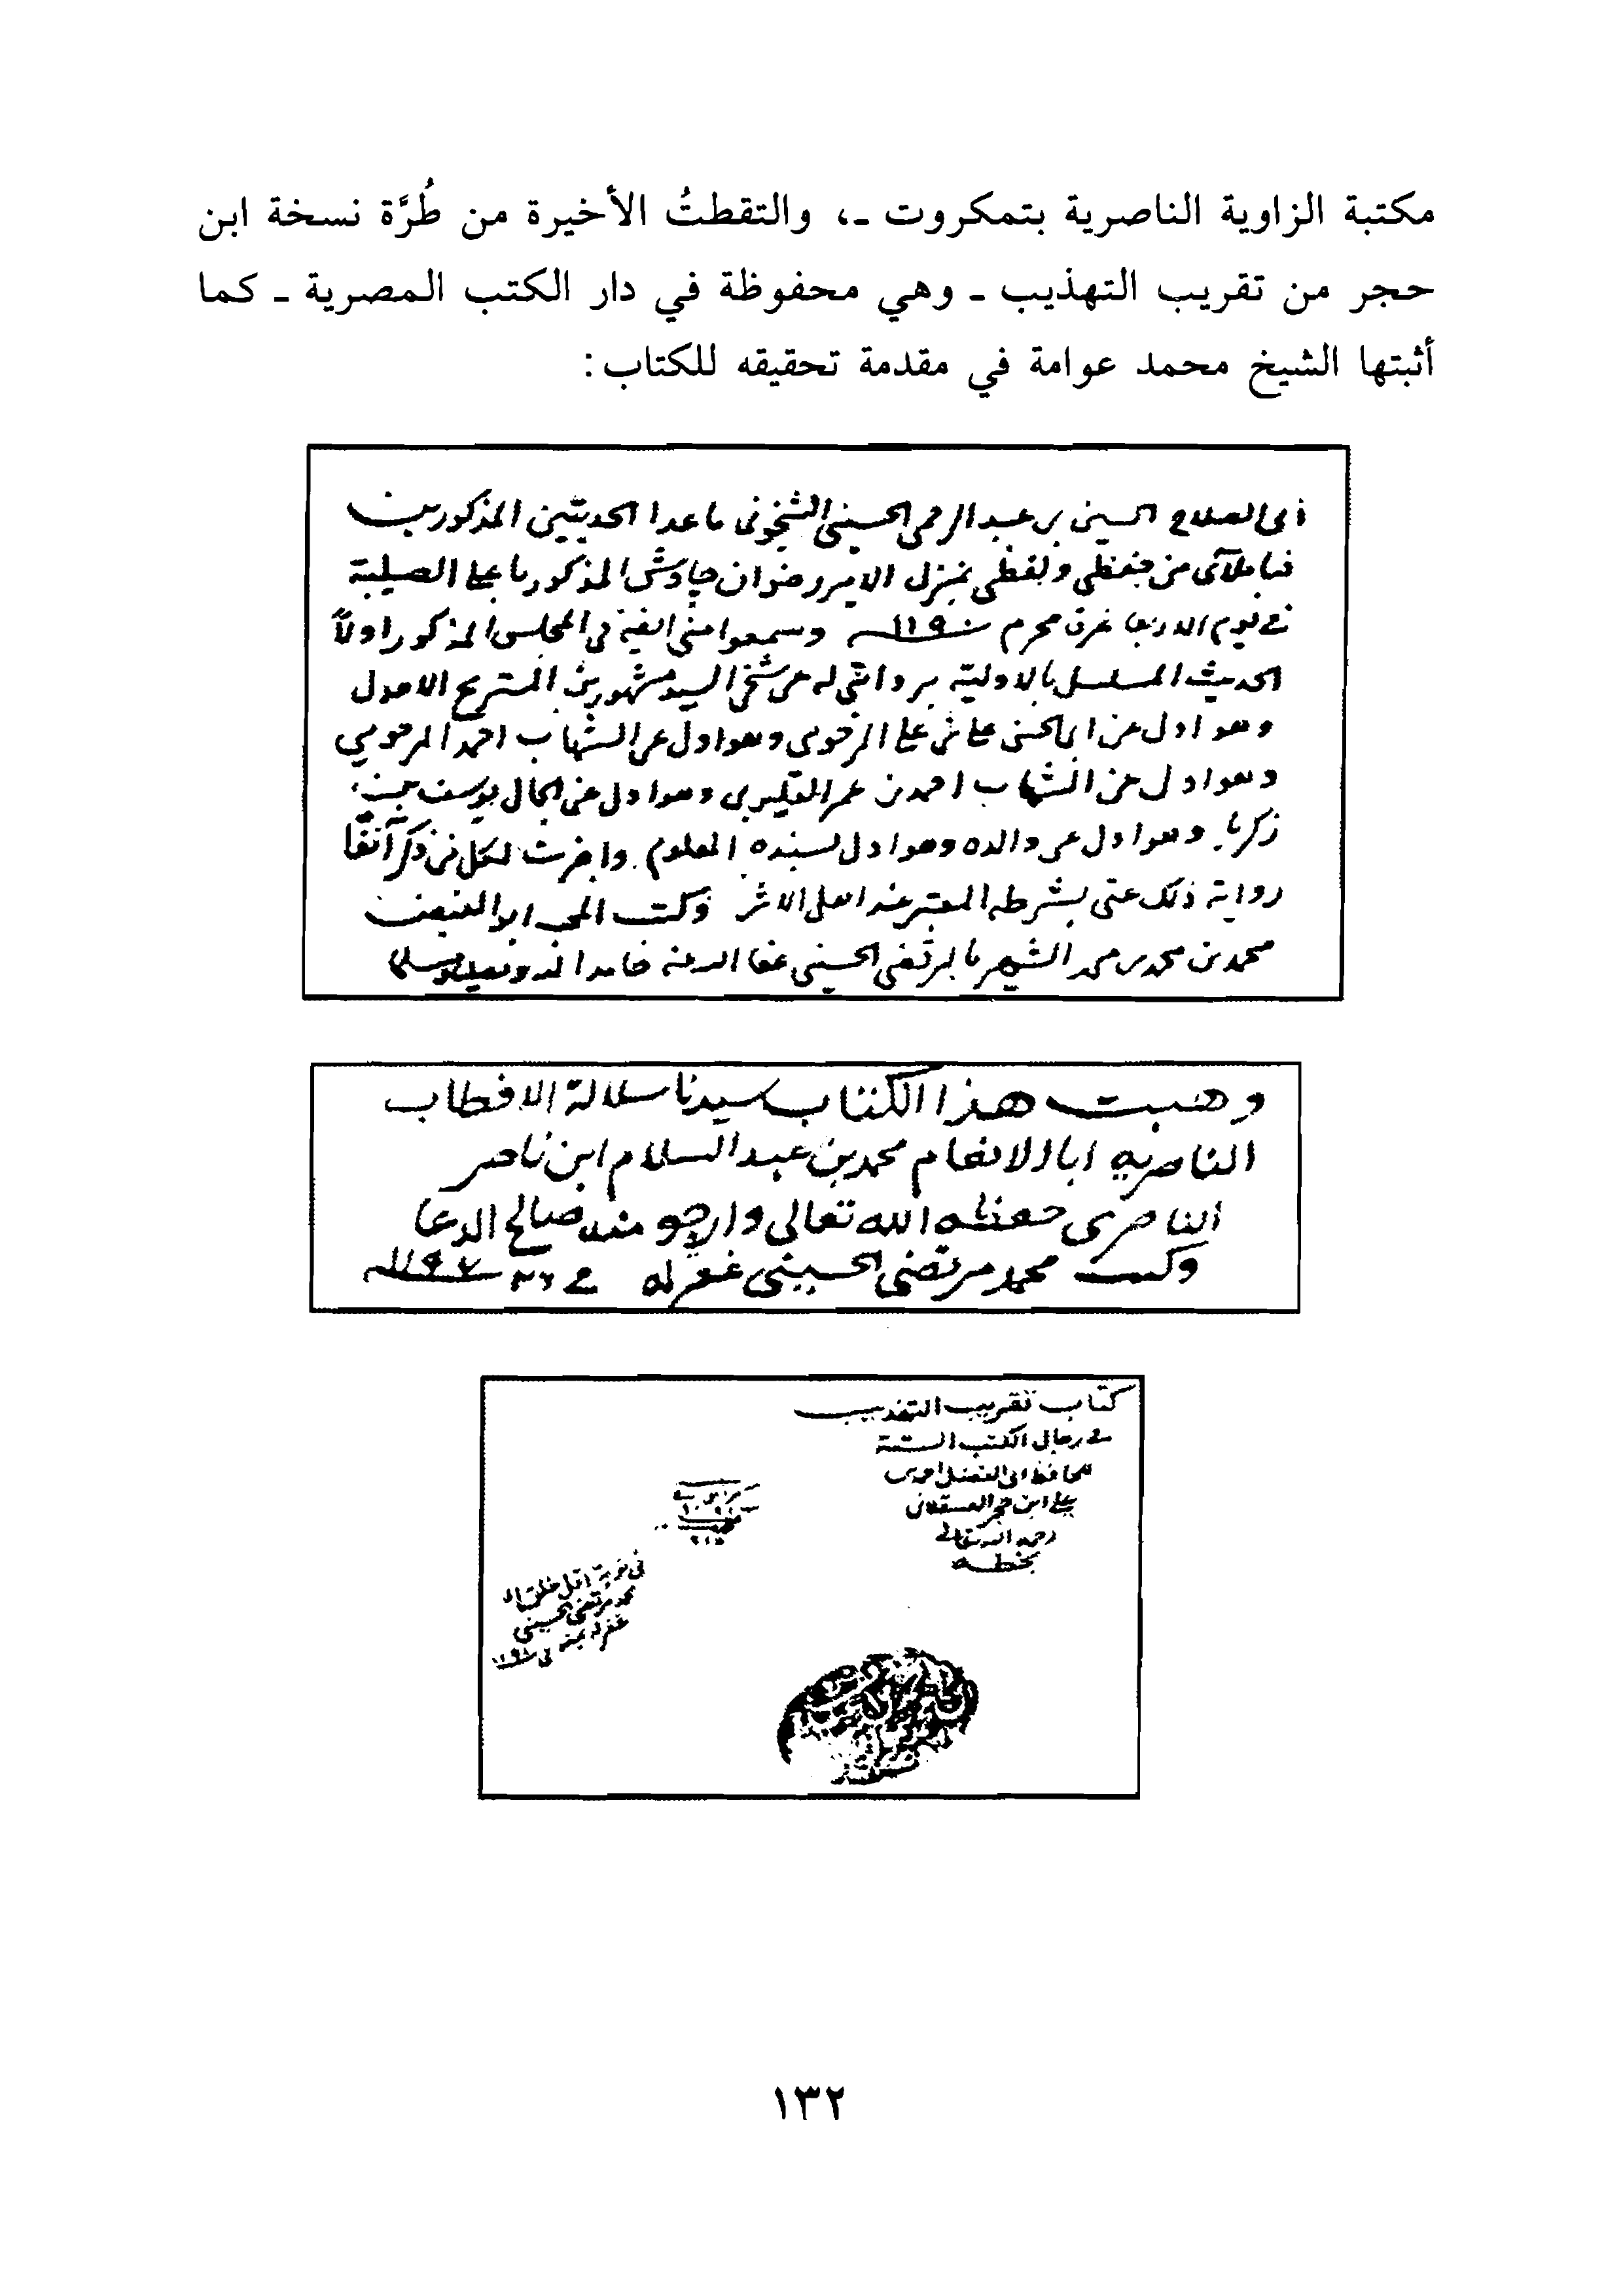 مكتبة الزاوية الناصرية بتمكروت ـ، والتقطتُ الأخيرة من طُرَّة نسخة ابن
حجر من تقريب التهذيب ـ وهي محفوظة في دار الكتب المصرية ـ كما
أثبتها الشيخ محمد عوامة في مقدمة تحقيقه للكتاب:
أبي الصلاح الحسين بن عبد الرحمن الحسيني الشيخوني ما عدا الحديثين المذكورين
من حفظي ولفظي بمنزل الامير رضوان جاوش المذكور باعلا الصليبة
في يوم الاربعا غرة محرم ١١٩٠ وسمعوا مني في المجلس المذكور اولاً
الحديث المسلسل بالاولية بروايتي له عن شيخي السيد مشهور بن المستريح الاهدل
وهو اول عن ابي الحسن علي بن علي المرحومي وهو اول عن الشهاب احمد المرحومي
وهو اول عن الشهاب احمد بن عمر القليوبي وهو اول عن الجمال يوسف بن
زكريا وهو اول عن والده وهو اول بسنده المعلوم واجزت لكل من ذكر آنفاً
رواية ذلك عني بشرطه المعتبر عند اهل الاثر وكتب ابو الفيض
محمد بن محمد بن محمد الشهير بالمرتضى الحسيني عفا الله عنه حامدا لله ومصليا ومسلما
وهبت هذا الكتاب سيدنا سلالة الاقطاب
الناصرية ابا الانعام محمد بن عبد السلام ابن ناصر
الناصري حفظه الله تعالى وارجو منه صالح الدعا
وكتب محمد مرتضى الحسيني غفر له في ١١٩٧
كتاب تقريب التهذيب
في رجال الكتب الستة
للحافظ ابي الفضل احمد بن
علي ابن حجر العسقلاني
رحمه الله تعالى
بخطه
في نوبة اقل خلق الله
محمد مرتضى الحسيني
غفر له بمنه في
١٣٢